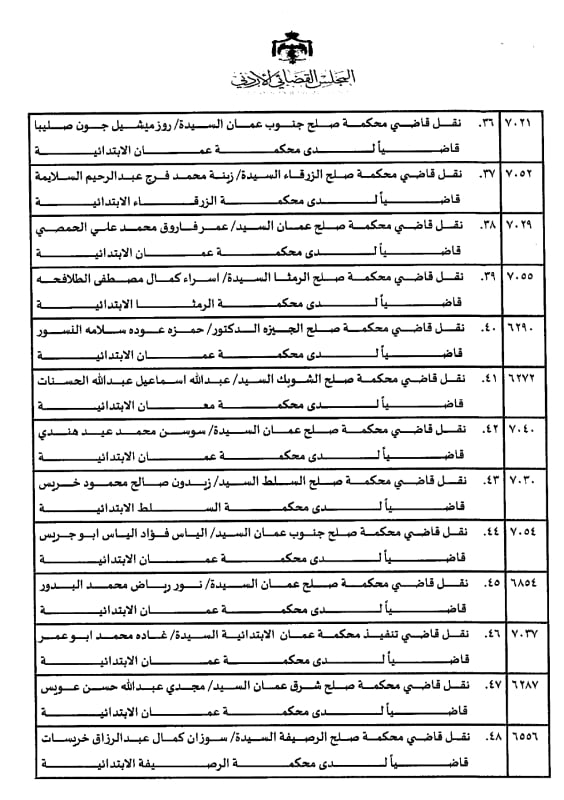 المجلس القضائي الاردني
٧٠٢١ ٣٦. نقل قاضي محكمة صلح جنوب عمان السيدة/ روز ميشيل جون صليبا
قاضياً لدى محكمة عمان الابتدائية
٧٠٥٢ ٣٧. نقل قاضي محكمة صلح الزرقاء السيدة/ زينة محمد فرج عبدالرحيم السلايمة
قاضياً لدى محكمة الزرقاء الابتدائية
٧٠٢٩ ٣٨. نقل قاضي محكمة صلح عمان السيد/ عمر فاروق محمد علي الحمصي
قاضياً لدى محكمة عمان الابتدائية
٧٠٥٥ ٣٩. نقل قاضي محكمة صلح الرمثا السيدة/ اسراء كمال مصطفى الطلافحه
قاضياً لدى محكمة الرمثا الابتدائية
٦٢٩٠ ٤٠. نقل قاضي محكمة صلح الجيزه الدكتور/ حمزه عوده سلامه النسور
قاضياً لدى محكمة عمان الابتدائية
٦٢٧٢ ٤١. نقل قاضي محكمة صلح الشوبك السيد/ عبدالله اسماعيل عبدالله الحسنات
قاضياً لدى محكمة معان الابتدائية
٧٠٤٠ ٤٢. نقل قاضي محكمة صلح عمان السيدة/ سوسن محمد عيد هندي
قاضياً لدى محكمة عمان الابتدائية
٧٠٣٠ ٤٣. نقل قاضي محكمة صلح السلط السيد/ زيدون صالح محمود خريس
قاضياً لدى محكمة السلط الابتدائية
٧٠٥٤ ٤٤. نقل قاضي محكمة صلح جنوب عمان السيد/ الياس فؤاد الياس ابو جريس
قاضياً لدى محكمة عمان الابتدائية
٦٨٥٤ ٤٥. نقل قاضي محكمة صلح عمان السيدة/ نور رياض محمد البدور
قاضياً لدى محكمة عمان الابتدائية
٧٠٣٧ ٤٦. نقل قاضي تنفيذ محكمة عمان الابتدائية السيدة/ غاده محمد ابو عمر
قاضياً لدى محكمة عمان الابتدائية
٦٢٨٧ ٤٧. نقل قاضي محكمة صلح شرق عمان السيد/ مجدي عبدالله حسن عويس
قاضياً لدى محكمة عمان الابتدائية
٦٥٥٦ ٤٨. نقل قاضي محكمة صلح الرصيفة السيدة/ سوزان كمال عبدالرزاق خريسات
قاضياً لدى محكمة الرصيفة الابتدائية